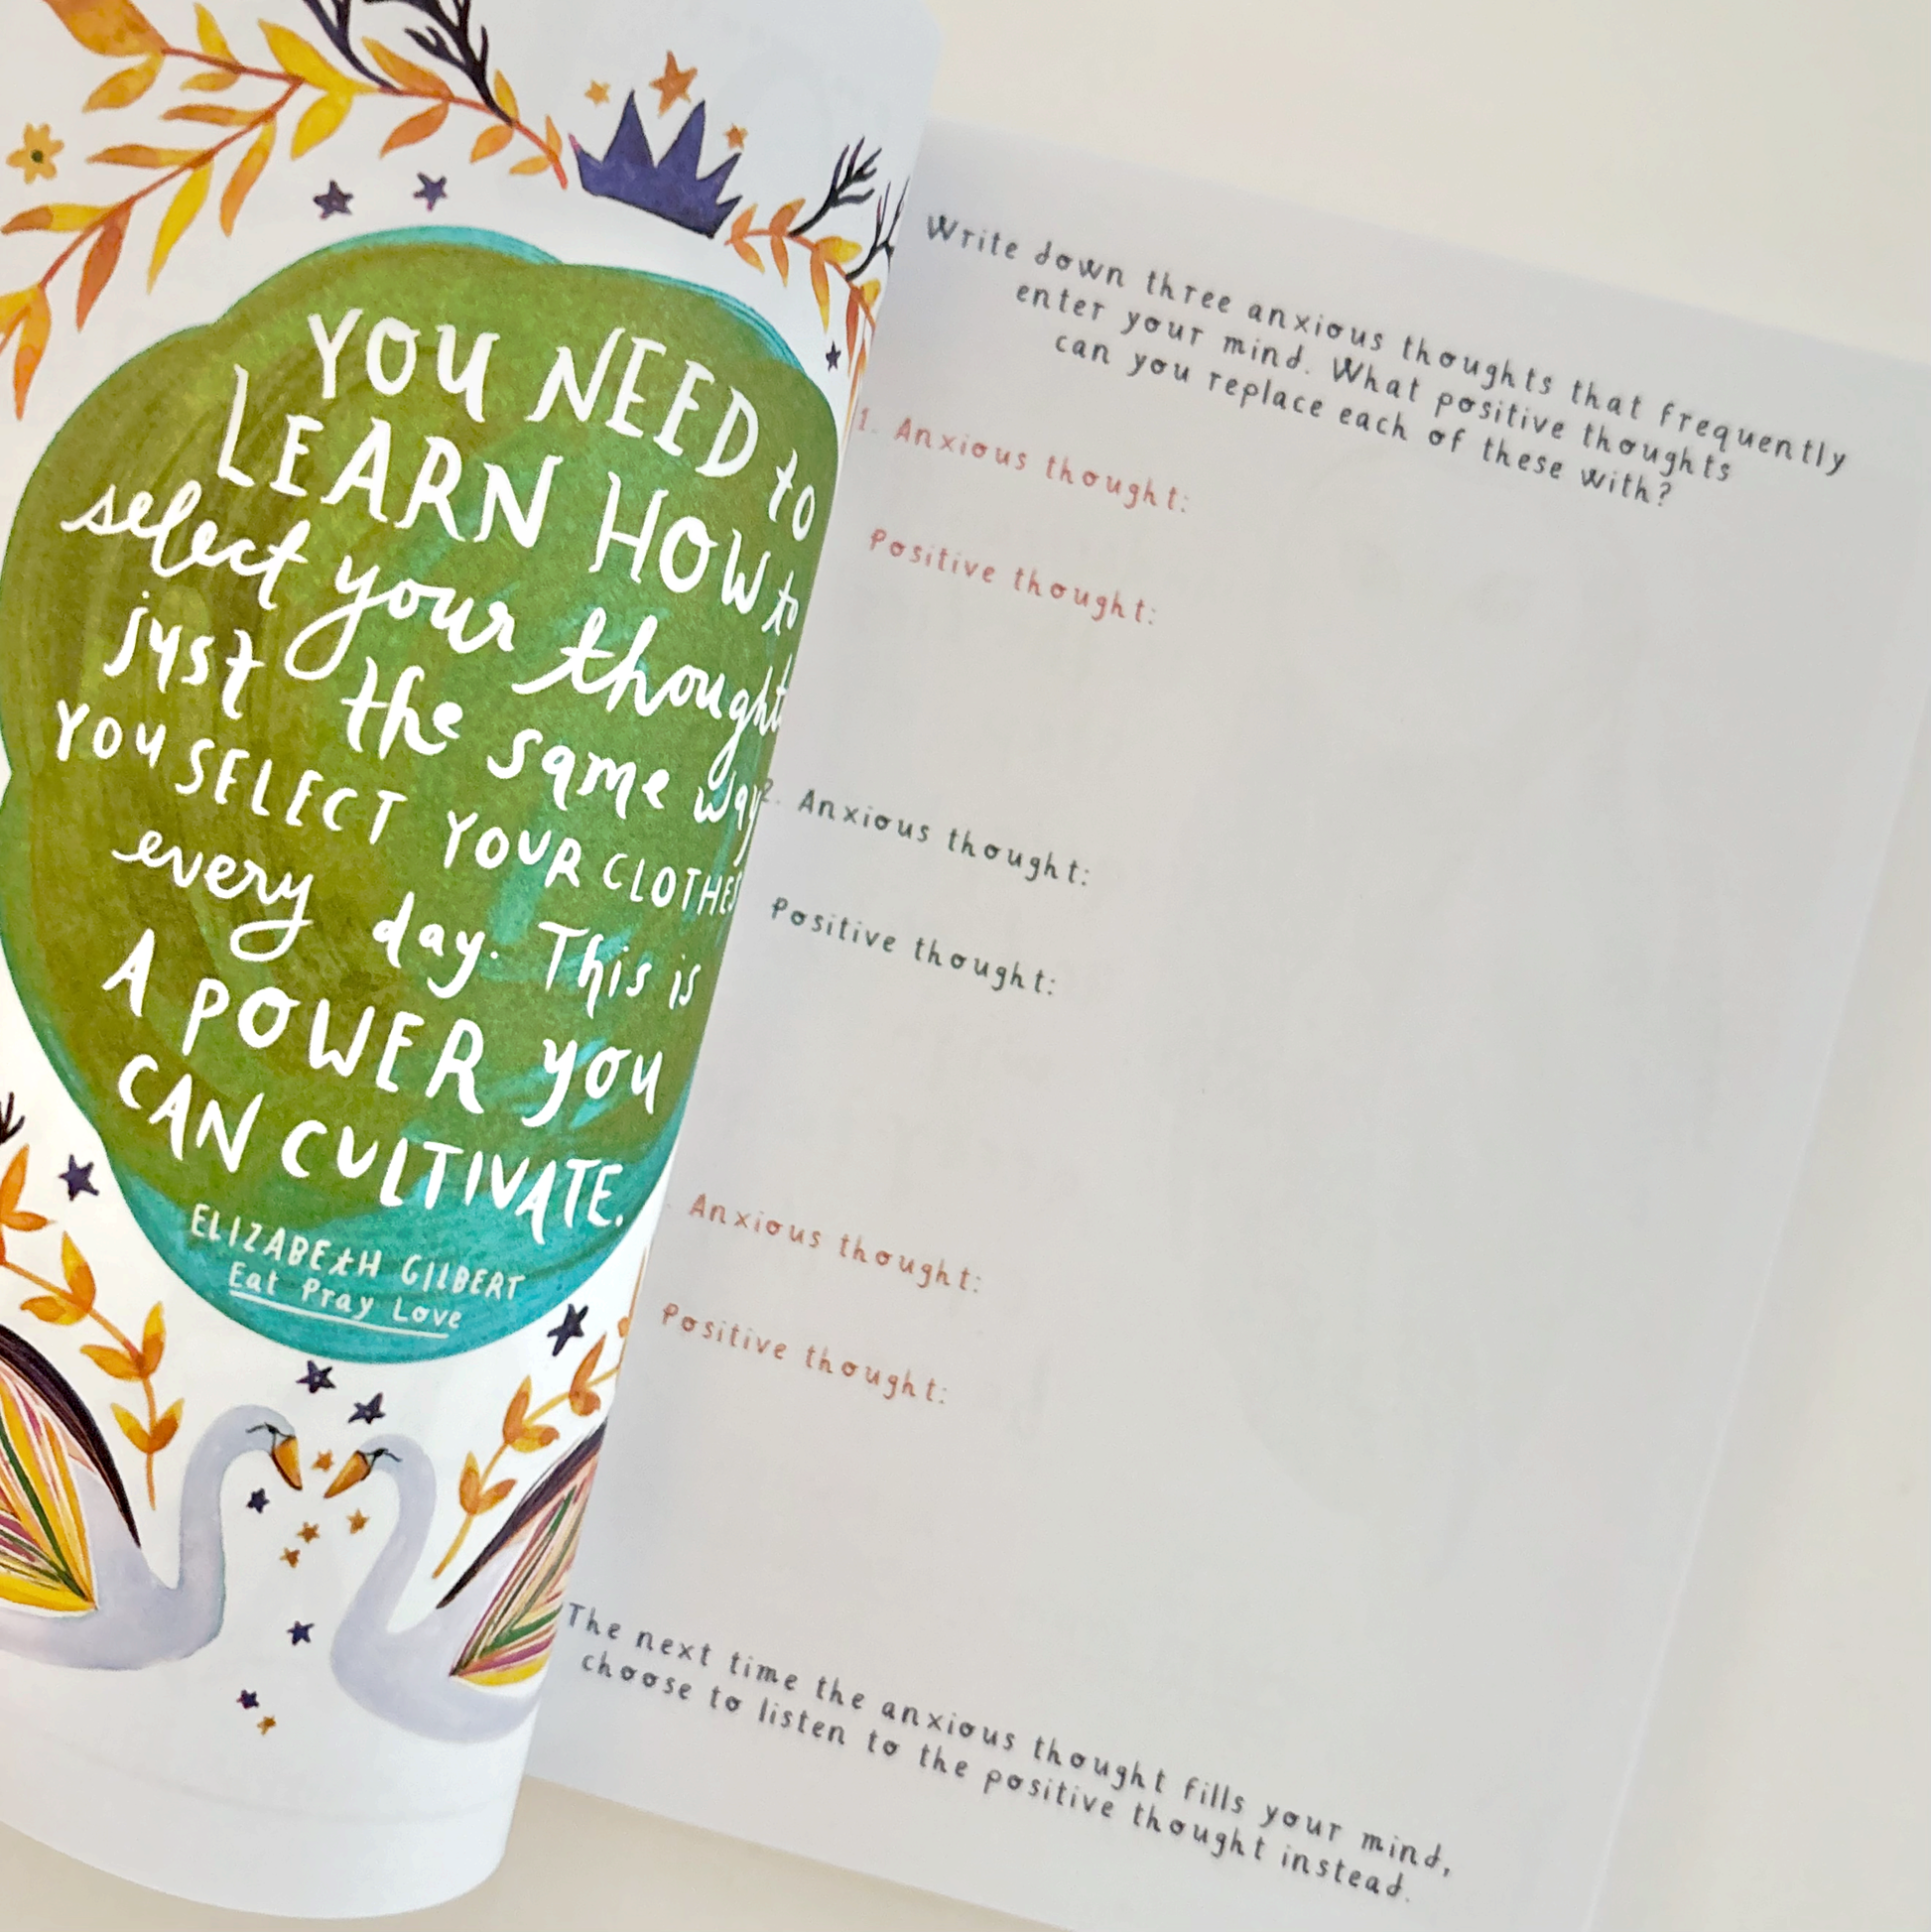 YOU NEED to
LEARN HOW to
select your thought
just the same way
YOU SELECT YOUR CLOTHES
every day. This is
A POWER you
CAN CULTIVATE.
ELIZABEtH GILBERT
Eat Pray Love
Write down three anxious thoughts that frequently
enter your mind. What positive thoughts
can you replace each of these with?
1. Anxious thought:
Positive thought:
2. Anxious thought:
Positive thought:
Anxious thought:
Positive thought:
The next time the anxious thought fills your mind,
choose to listen to the positive thought instead.